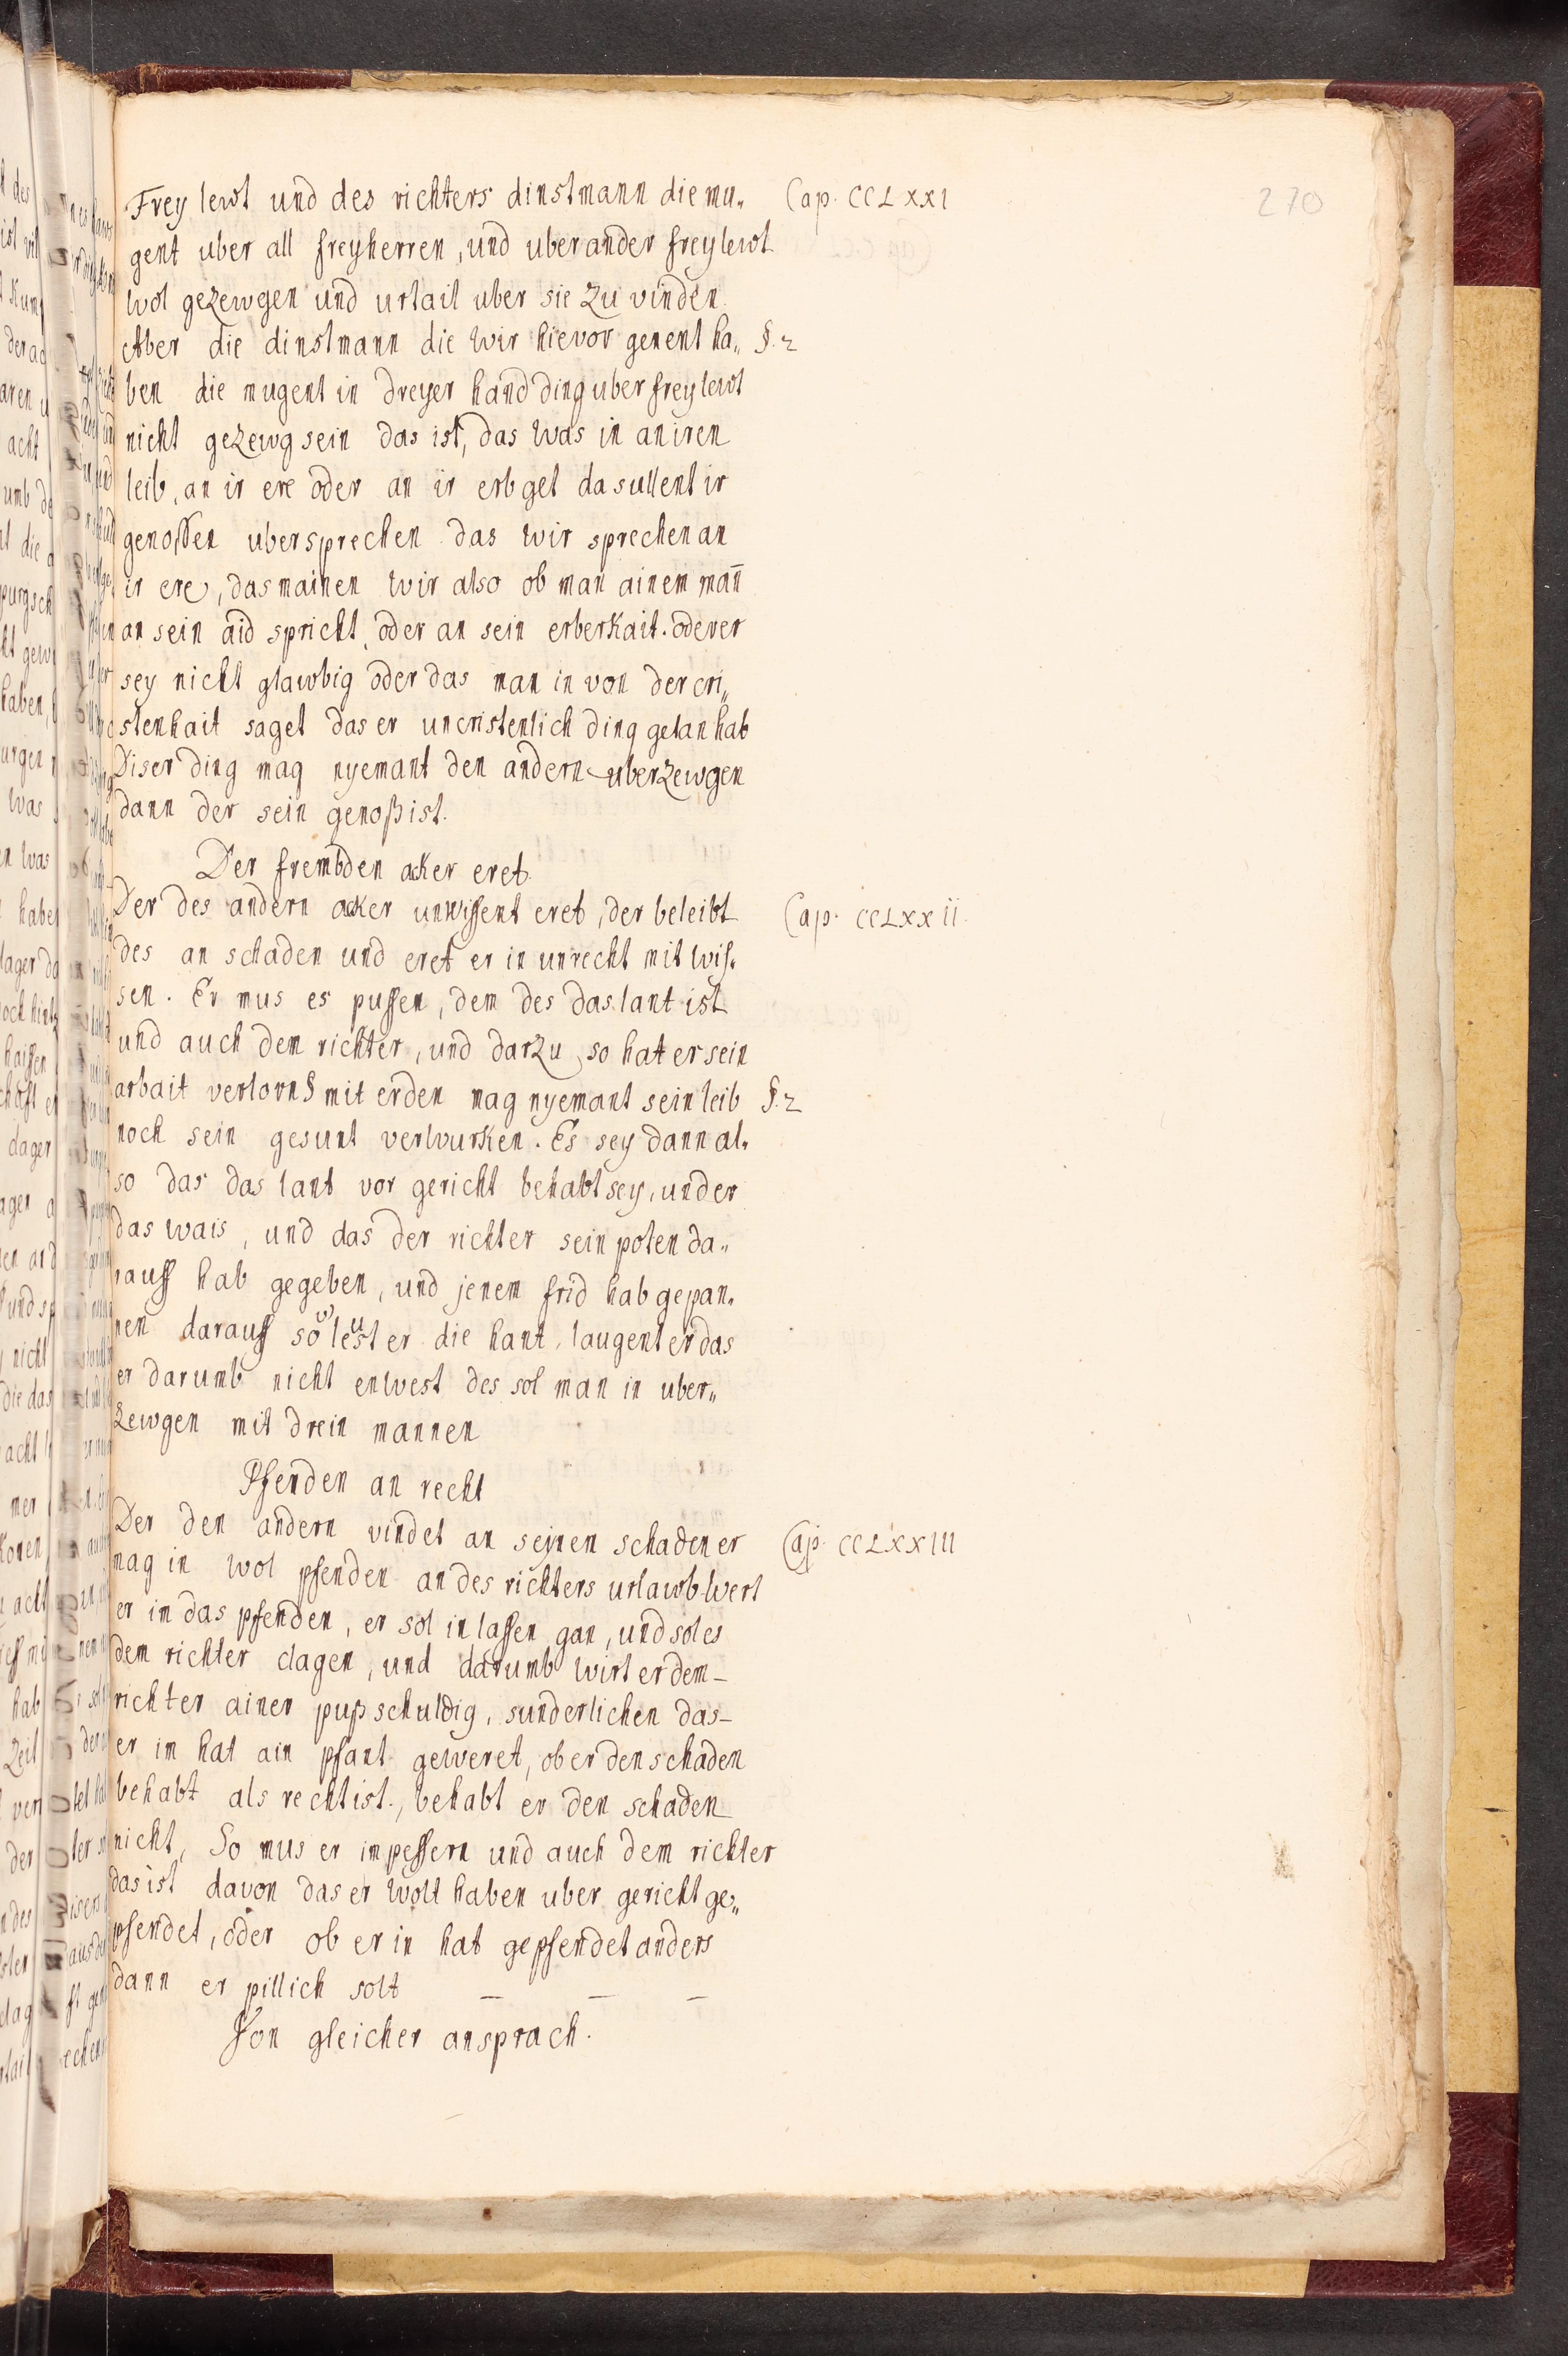 270
Frey lewt und des richters dinstmann die mu„ Cap. CCLXXI
gent uber all freyherren, und uber ander freylewt
wol gezewgen und urtail uber sie zu vinden.
Aber die dinstmann die wir hievor genent ha„ §. 2
ben die mugent in dreyer hand ding uber frey lewt
nicht gezewg sein das ist, das was in an iren
leib, an ir ere oder an ir erb get da sullent ir
genossen ubersprechen das wir sprechen an
ir ere, das mainen wir also ob man ainem man̄
an sein aid spricht, oder an sein erberkait. oder er
sey nicht glawbig oder das man in von der cri„
stenhait saget das er uncristenlich ding getan hab
Diser ding mag nyemant den andern uberzewgen
dann der sein genoß ist.
Der frembden acker eret.
Der des andern acker unwissent eret, der beleibt Cap. CCLXXII.
des an schaden und eret er in unrecht mit wis„
sen. Er mus es pussen, dem des das lant ist
und auch dem richter, und darzu so hat er sein
arbait verlorn § mit erden mag nyemant sein leib §. 2
noch sein gesunt verwurken. Es sey dann al„
so das das lant vor gericht behabt sey, und er
das wais, und das der richter sein poten da„
rauff hab gegeben, und jenem frid hab gepan„
nen darauff so leust er die hant, laugent er das
er darumb nicht enwest des sol man in uber„
zewgen mit drein mannen
Pfenden an recht
Der den andern vindet an seynen schaden er Cap. CCLXXIII
mag in wol pfenden an des richters urlawb wert
er im das pfenden, er sol in lassen gan, und sol es
dem richter clagen, und darumb wirt er dem
richter ainer puß schuldig, sunderlichen das
er im hat ain pfant geweret, ob er den schaden
behabt als recht ist, behabt er den schaden
nicht, So mus er im pessern und auch dem richter
das ist davon das er wolt haben uber gericht ge„
pfendet, oder ob er in hat gepfendet anders
dann er pillich solt — — —
Von gleicher ansprach.